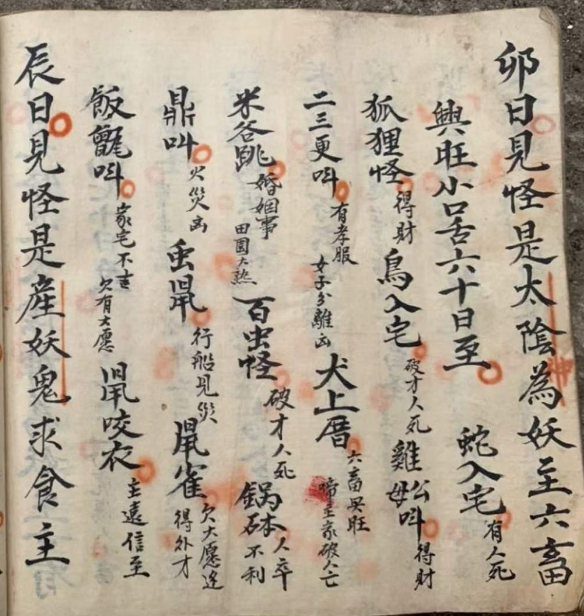 卯日見怪是太陰為妖主六畜
興旺小口舌六十日至 蛇入宅有人死
狐狸怪得財 鳥入宅破才人死 雞公母叫得財
二三更叫有孝服女子分離凶 犬上厝六畜興旺啼主家破人亡
米谷跳婚姻事田園大熟 百虫怪破才人死 鍋砵人卒不利
鼎叫火災凶 行船見災 欠大愿送得外才
飯甑叫家宅不主欠有大愿 咬衣主遠信至
辰日見怪是産妖鬼求食主